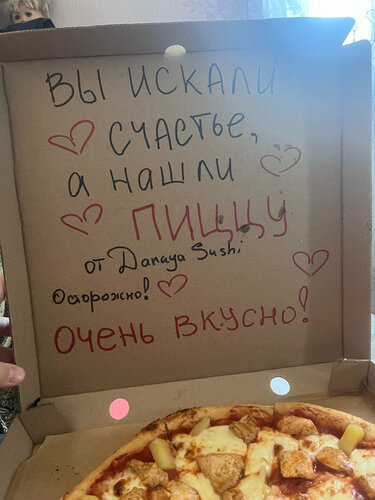 Вы искали
счастье,
а нашли
пиццу
от Danaya Sushi
Осторожно!
Очень вкусно!